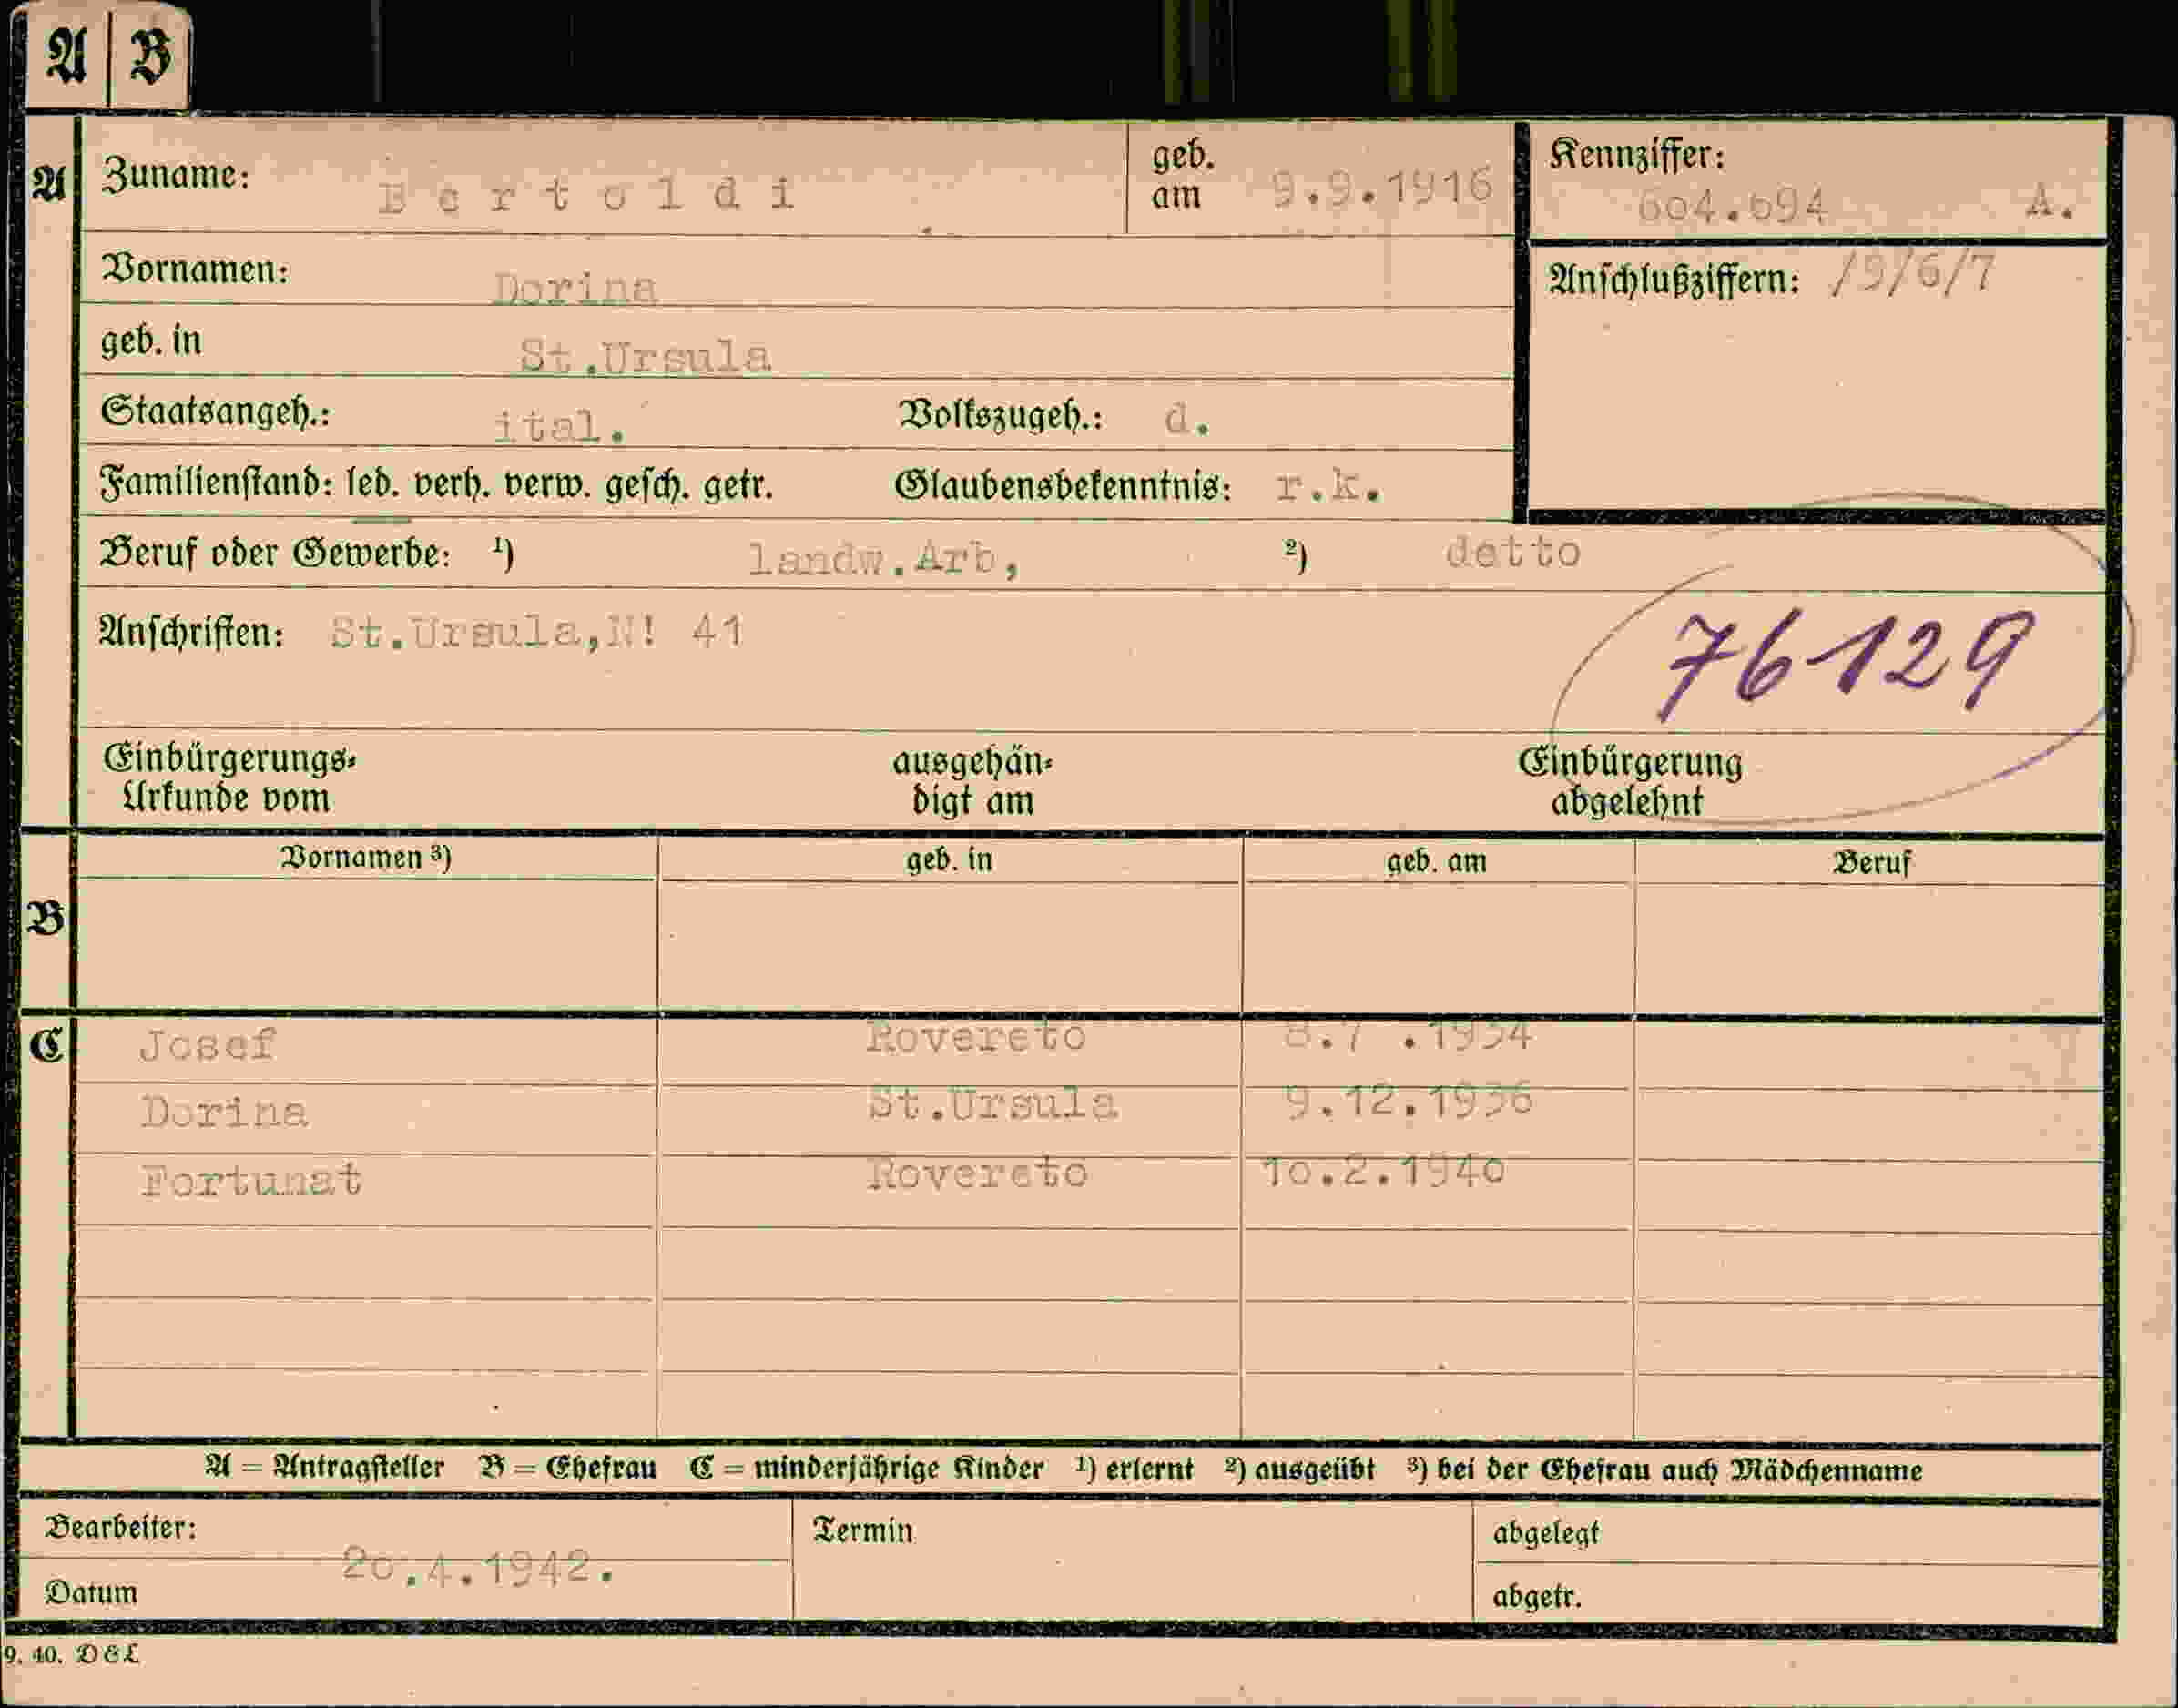 A B
A Zuname: B e r t o l d i geb. am 9.9.1916
Kennziffer: 604.694 A.
Vornamen: Dorina
Anschlußziffern: /5/6/7
geb. in St.Ursula
Staatsangeh.: ital. Volkszugeh.: d.
Familienstand: led. verh. verw. gesch. getr. Glaubensbekenntnis: r.k.
Beruf oder Gewerbe: ¹) landw.Arb, ²) detto
Anschriften: St.Ursula,N! 41
76129
Einbürgerungs- ausgehän- Einbürgerung
Urkunde vom digt am abgelehnt
Vornamen ³) geb. in geb. am Beruf
B
C Josef Rovereto 8.7 .1934
Dorina St.Ursula 9.12.1936
Fortunat Rovereto 10.2.1940
A = Antragsteller B = Ehefrau C = minderjährige Kinder ¹) erlernt ²) ausgeübt ³) bei der Ehefrau auch Mädchenname
Bearbeiter: Termin abgelegt
20.4.1942.
Datum abgetr.
9. 40. D&L